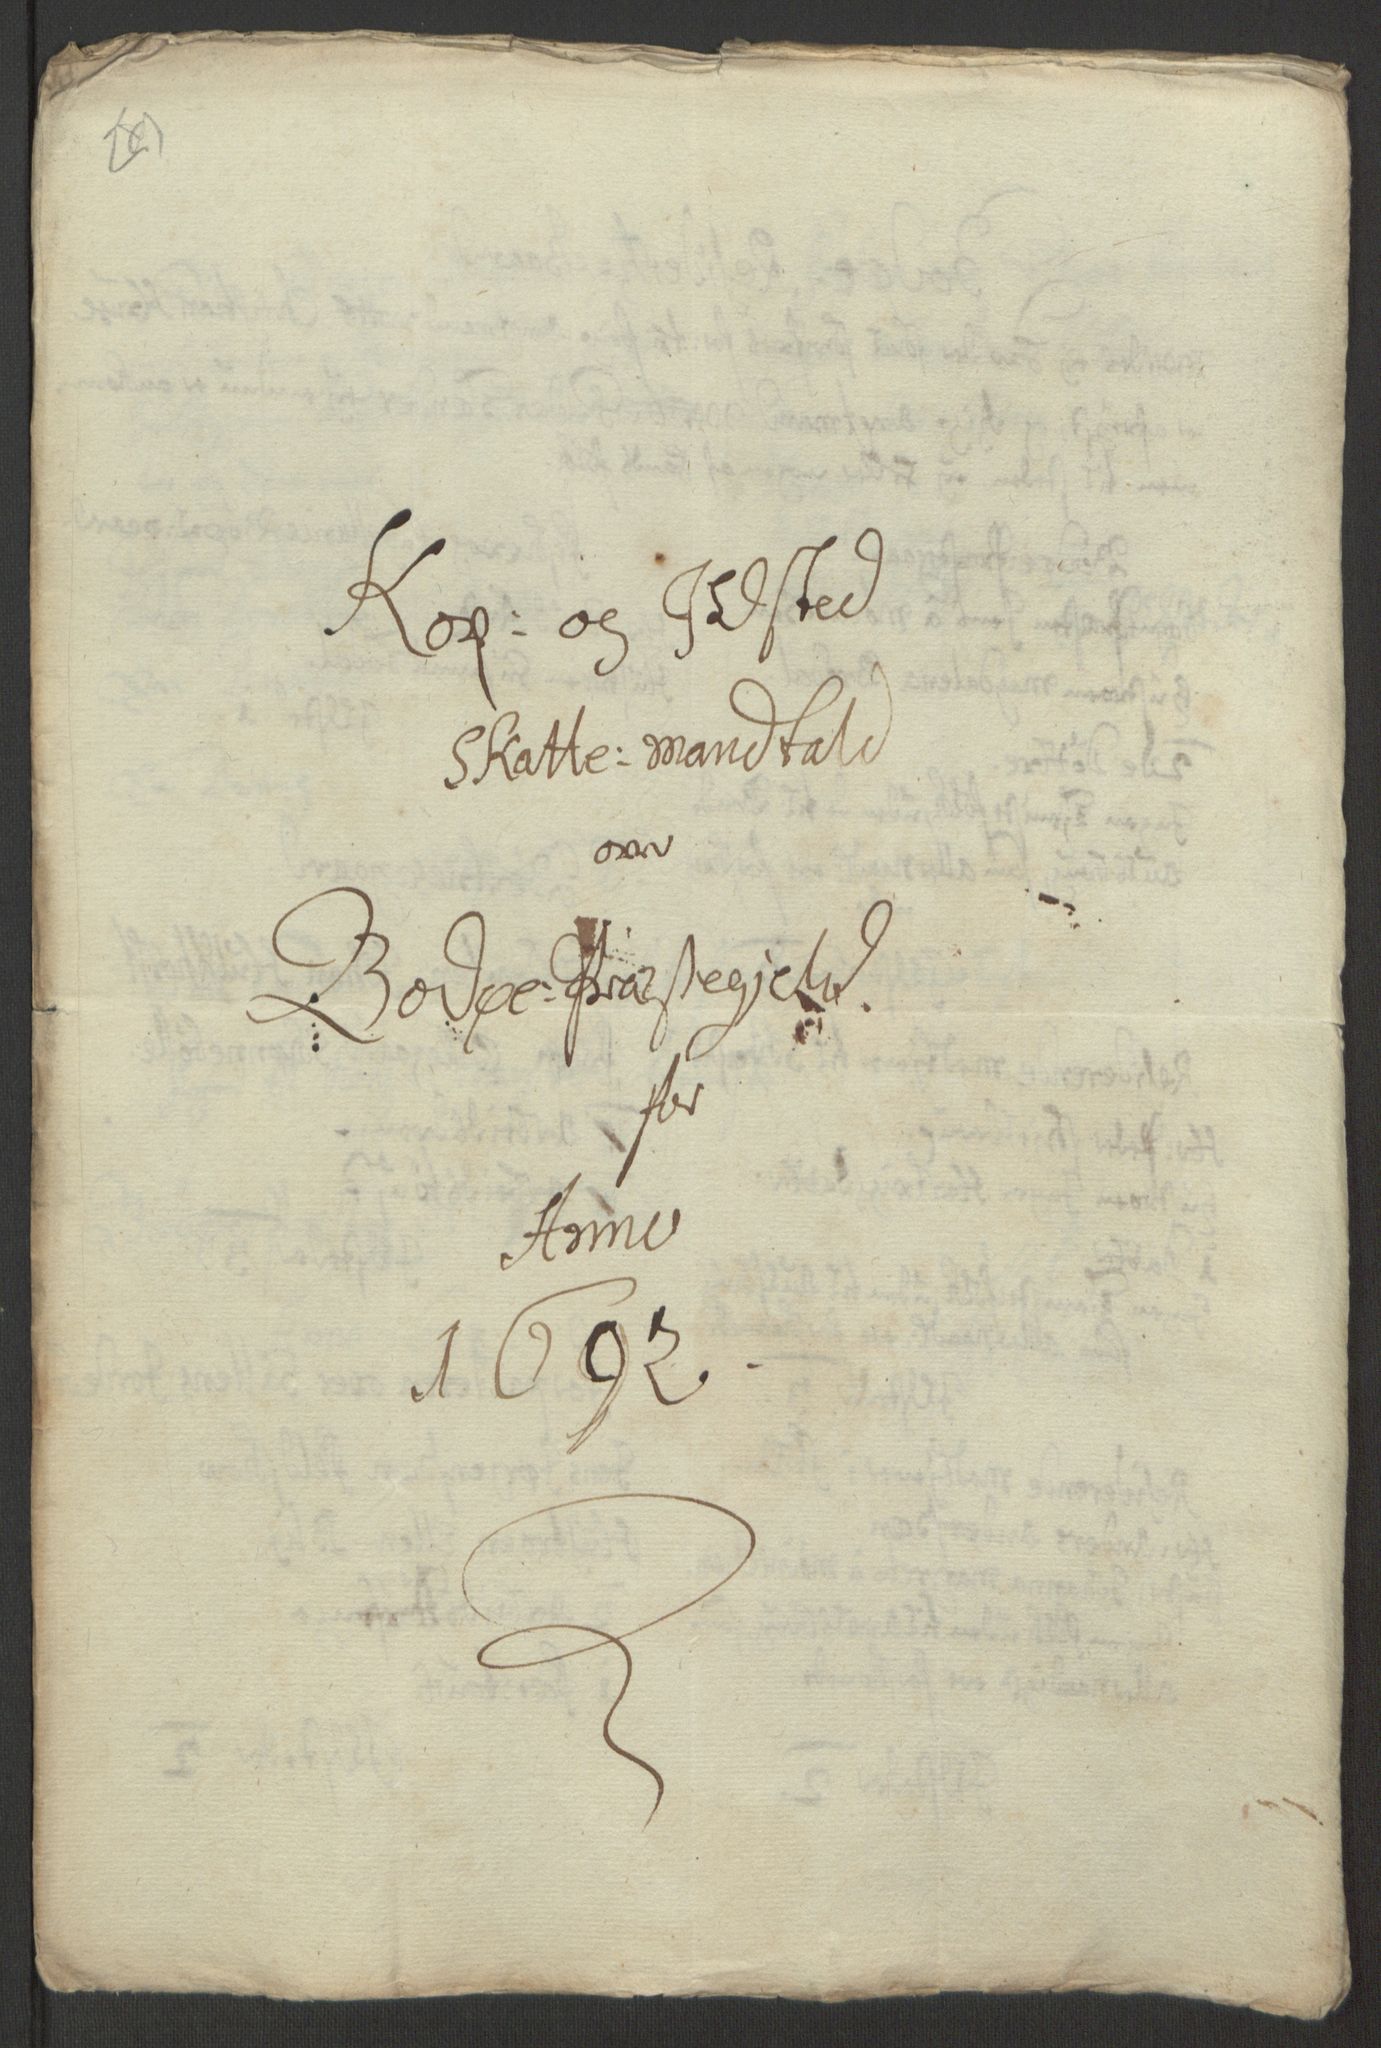 Kop: og Ildsted
Skatte: mandtald
over
Bodøe: Præstegjeld.
for
Anno
1692.